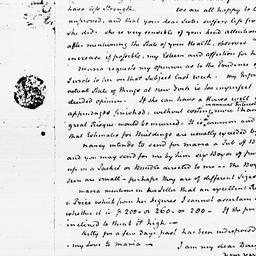 have less Strength. We are all happy to
improved, and that your dear Sister suffers less f
she did. She is very sensible of your kind attention
after mentioning the State of your Health, observes
increase if possible, my Esteem and affection for h
Maria requests my opinion as to the Prudence
I wrote to her on that Subject last week. My
actual State of Things at New York is too imperfect
decided opinion. If she can have a House well
appendages finished, without costing
great Risque would be incurred. It is common and
that Estimates for Buildings are usually exceeded by
Nancy intends to send for Maria a Tub of
and you may send me by him six Boxes of
up in a Sachel or Bundle directed to me. The
seen are small - perhaps they are of different Sizes
Maria mentions in her Letter that an excellent
a Price which from her figures I cannot ascertain
whether it is £ 200 - or 260. or 280 - If the
inclined to think it high -
Kitty for a few Days past has been indisposed
- my Love to Maria - I am my dear